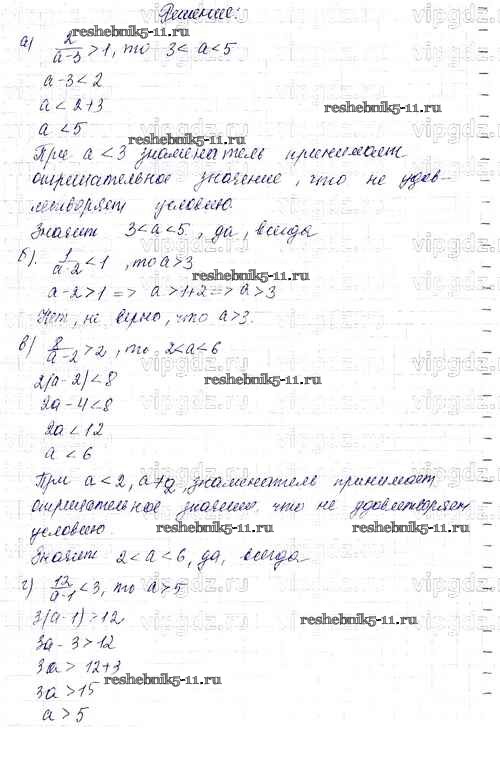 Решение:
reshebnik5-11.ru
а) 2/(a-3) > 1, то 3 < a < 5
a - 3 < 2
a < 2+3
reshebnik5-11.ru
a < 5
reshebnik5-11.ru
При a < 3 знаменатель принимает
отрицательное значение, что не удов-
летворяет условию
Значит 3 < a < 5, да, всегда
б). 1/(a-2) < 1, то a > 3
reshebnik5-11.ru
a-2 > 1 => a > 1+2 => a > 3
Нет, не верно, что a > 3.
в) 8/(a-2) > 2, то 2 < a < 6
2(a-2) < 8
reshebnik5-11.ru
2a - 4 < 8
2a < 12
a < 6
При a < 2, a ≠ 2, знаменатель принимает
отрицательное значение, что не удовлетворяет
условию.
reshebnik5-11.ru
reshebnik5-11.ru
Значит 2 < a < 6, да, всегда
г) 12/(a-1) < 3, то a > 5
3(a-1) > 12
3a - 3 > 12
3a > 12+3
reshebnik5-11.ru
3a > 15
a > 5
vipgdz.ru